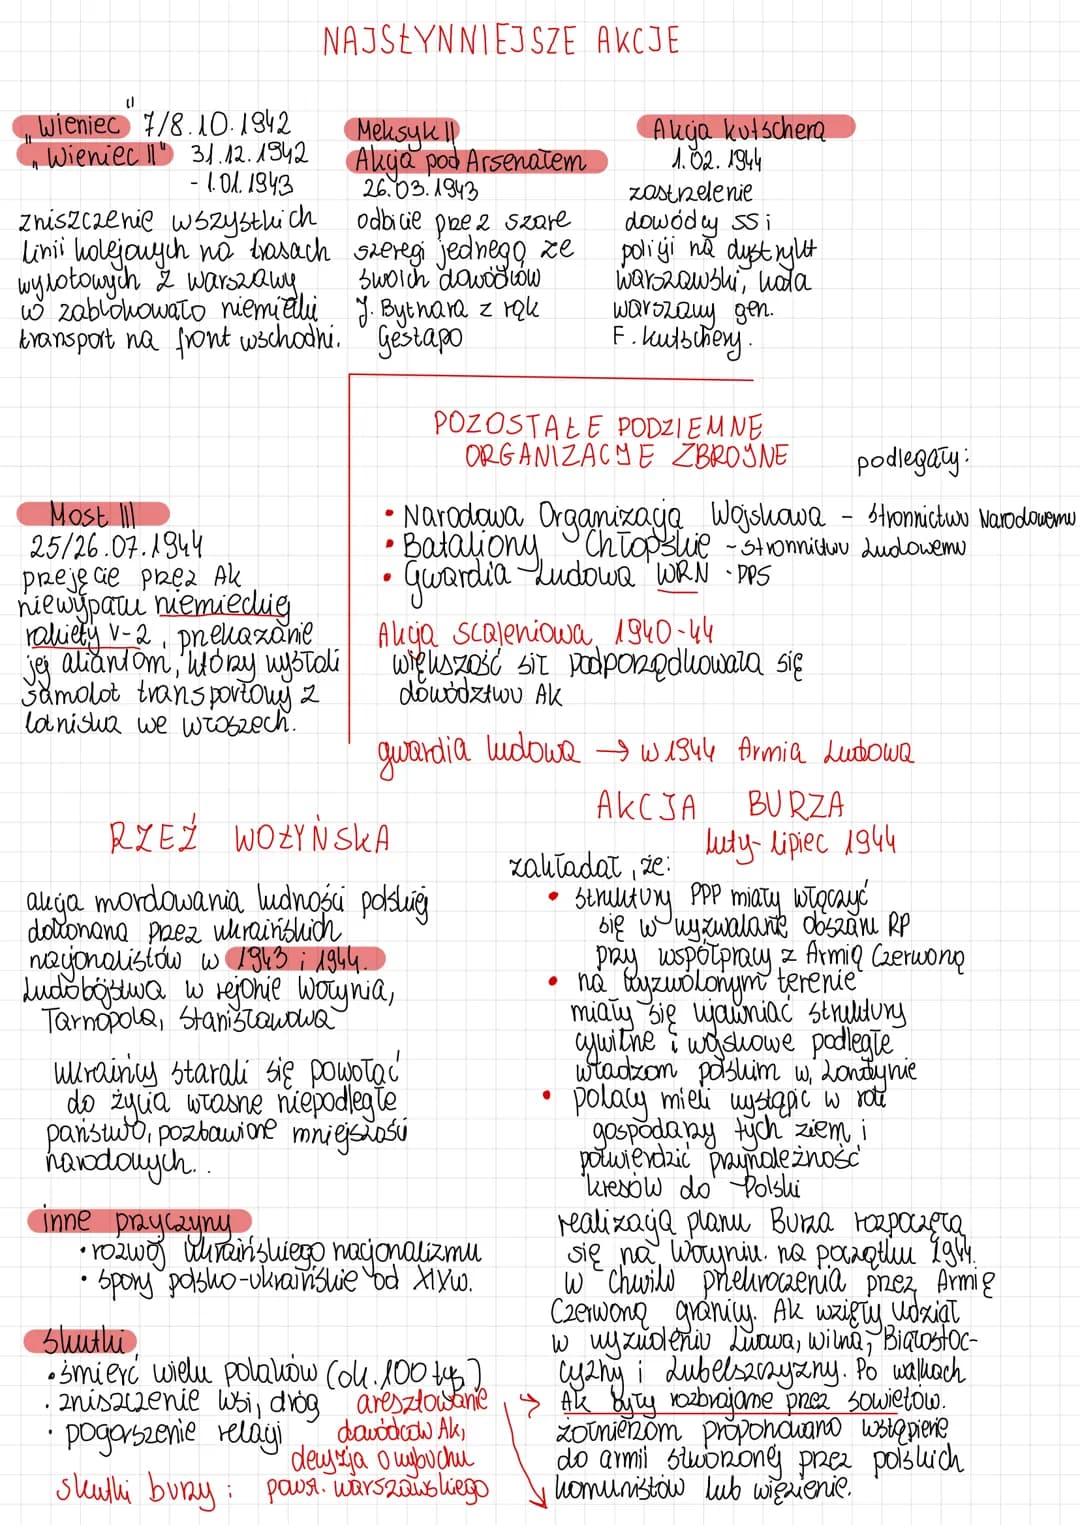 NAJSŁYNNIEJSZE AKCJE
"Wieniec" 7/8.10.1942
"Wieniec II" 31.12.1942
- 1.01.1943
zniszczenie wszystkich
linii kolejowych na trasach
wylotowych z warszawy
co zablokowało niemiecki
transport na front wschodni.
Meksyk II
Akcja pod Arsenałem
26.03.1943
odbicie przez szare
szeregi jednego ze
swoich dowódców
J. Bytnara z rąk
Gestapo
Akcja kutschera
1.02.1944
zastrzelenie
dowódcy SS i
policji na dystrykt
warszawski, kata
warszawy gen.
F. kutschery.
Most III
25/26.07.1944
przejęcie przez Ak
niewypału niemieckiej
rakiety V-2, przekazanie
jej aliantom, którzy wysłali
samolot transportowy z
lotniska we włoszech.
POZOSTAŁE PODZIEMNE
ORGANIZACJE ZBROJNE
podlegały:
• Narodowa Organizacja Wojskowa - Stronnictwu Narodowemu
• Bataliony Chłopskie - Stronnictwu Ludowemu
• Gwardia Ludowa WRN - PPS
Akcja Scaleniowa 1940-44
większość sił podporządkowała się
dowództwu Ak
gwardia ludowa → w 1944 Armia Ludowa
RZEŹ WOŁYŃSKA
akcja mordowania ludności polskiej
dokonana przez ukraińskich
nacjonalistów w 1943 i 1944.
Ludobójstwa w rejonie Wołynia,
Tarnopola, Stanisławowa
ukraińcy starali się powołać
do życia własne niepodległe
państwo, pozbawione mniejszości
narodowych..
inne przyczyny
• rozwój ukraińskiego nacjonalizmu
• spory polsko-ukraińskie od XIXw.
Skutki
• śmierć wielu polaków (ok. 100 tyś)
• zniszczenie wsi, dróg
• pogorszenie relacji
skutki burzy:
aresztowanie
dowódców Ak,
decyzja o wybuchu
powst. warszawskiego
AKCJA BURZA
luty-lipiec 1944
zakładał, że:
• struktury PPP miały włączyć
się w wyzwalanie obszaru RP
przy współpracy z Armią Czerwoną
• na wyzwolonym terenie
miały się ujawniać struktury
cywilne i wojskowe podległe
władzom polskim w Londynie
• polacy mieli wystąpić w roli
gospodarzy tych ziem i
potwierdzić przynależność
kresów do Polski
realizacja planu Burza rozpoczęta
się na Wołyniu na początku 1944.
w chwili przekroczenia przez Armię
Czerwoną granicy. Ak wzięły udział
w wyzwoleniu Lwowa, wilna, Białostoc-
czyzny i Lubelszczyzny. Po walkach
→ Ak były rozbrajane przez sowietów.
żołnierzom proponowano wstąpienie
do armii stworzonej przez polskich
komunistów lub więzienie.